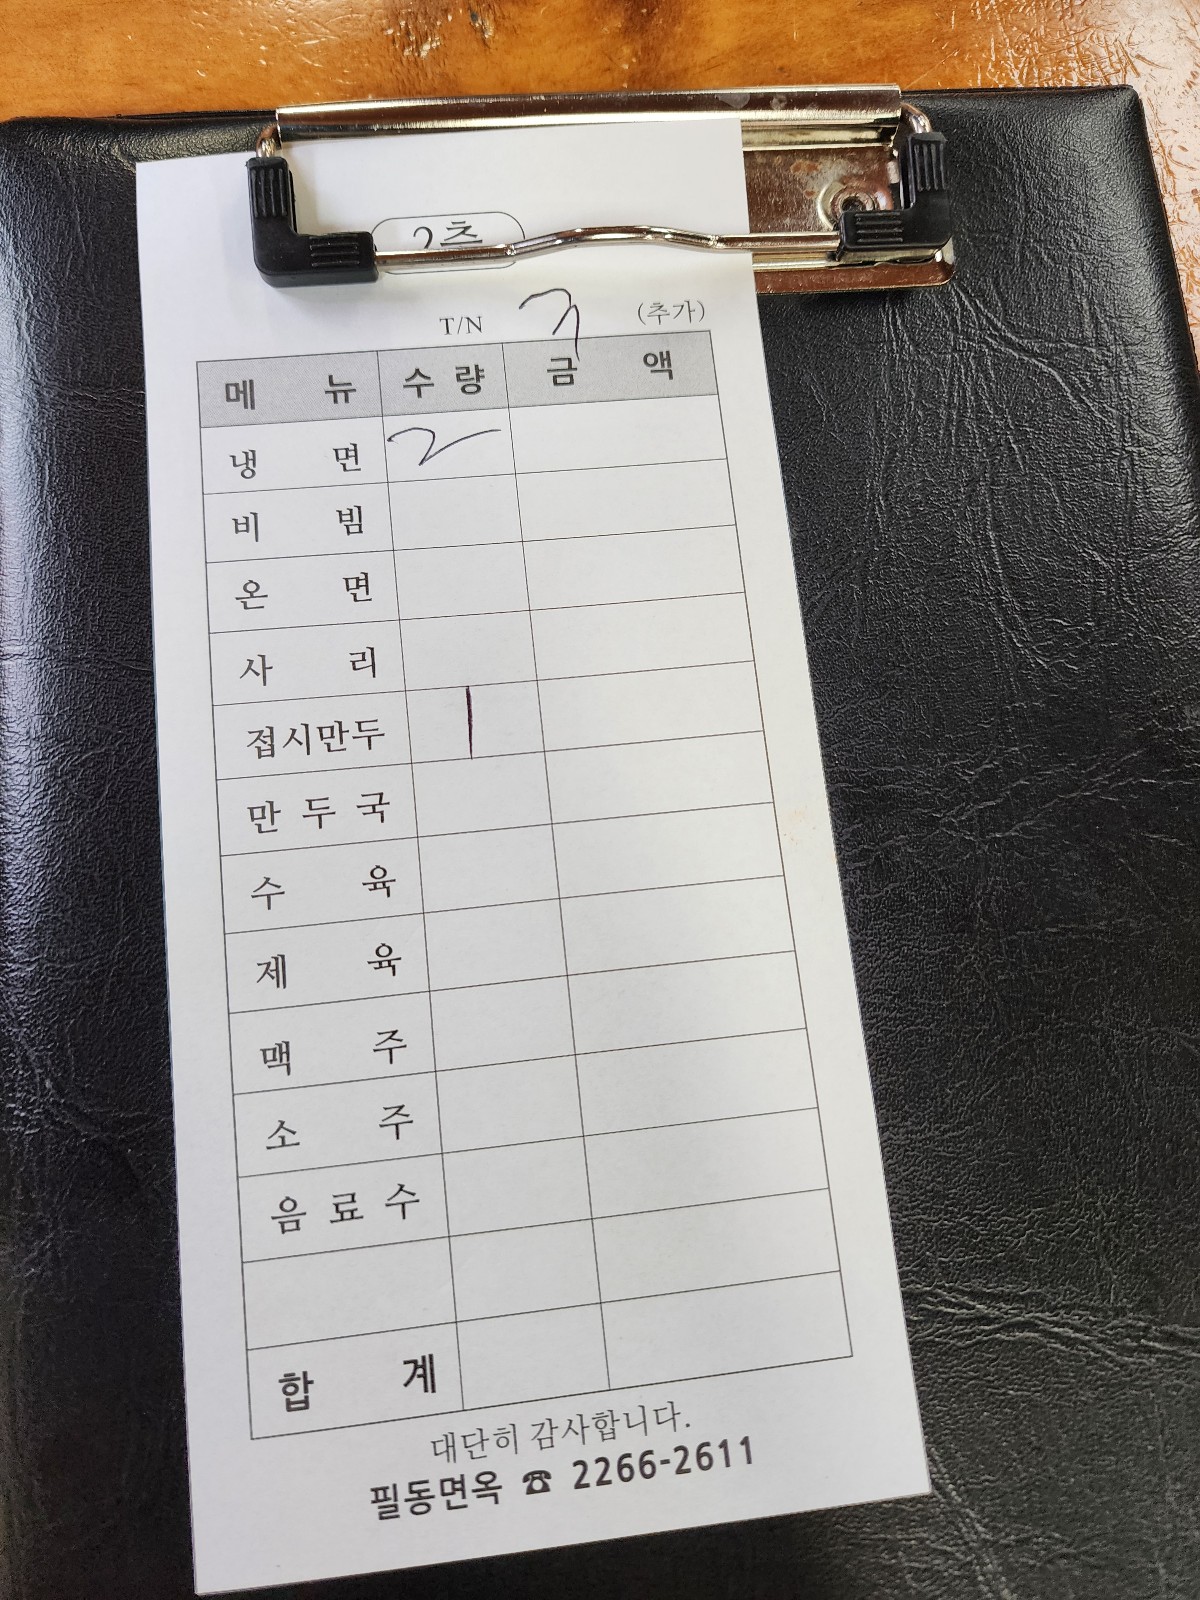 2층
T/N 7 (추가)
메 뉴 수 량 금 액
냉 면 2
비 빔
온 면
사 리
접시만두 1
만 두 국
수 육
제 육
맥 주
소 주
음 료 수
합 계
대단히 감사합니다.
필동면옥 ☎ 2266-2611